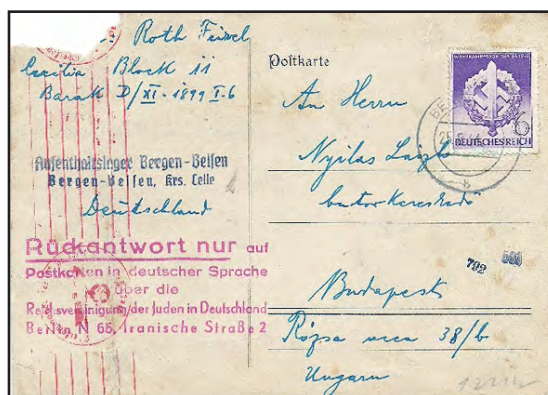 Roth Feiwel
Cecilia Block 11
Barak D/XI - 1899 I-6
Aufenthaltslager Bergen-Belsen
Bergen-Belsen, Krs. Celle
Deutschland
Rückantwort nur auf
Postkarten in deutscher Sprache
über die
Reichsvereinigung der Juden in Deutschland
Berlin N 65, Iranische Straße 2
Postkarte
DEUTSCHES REICH
6
b
An Herrn
Nyilas László
792
Budapest
Rózsa ucca 38/b
Ungarn